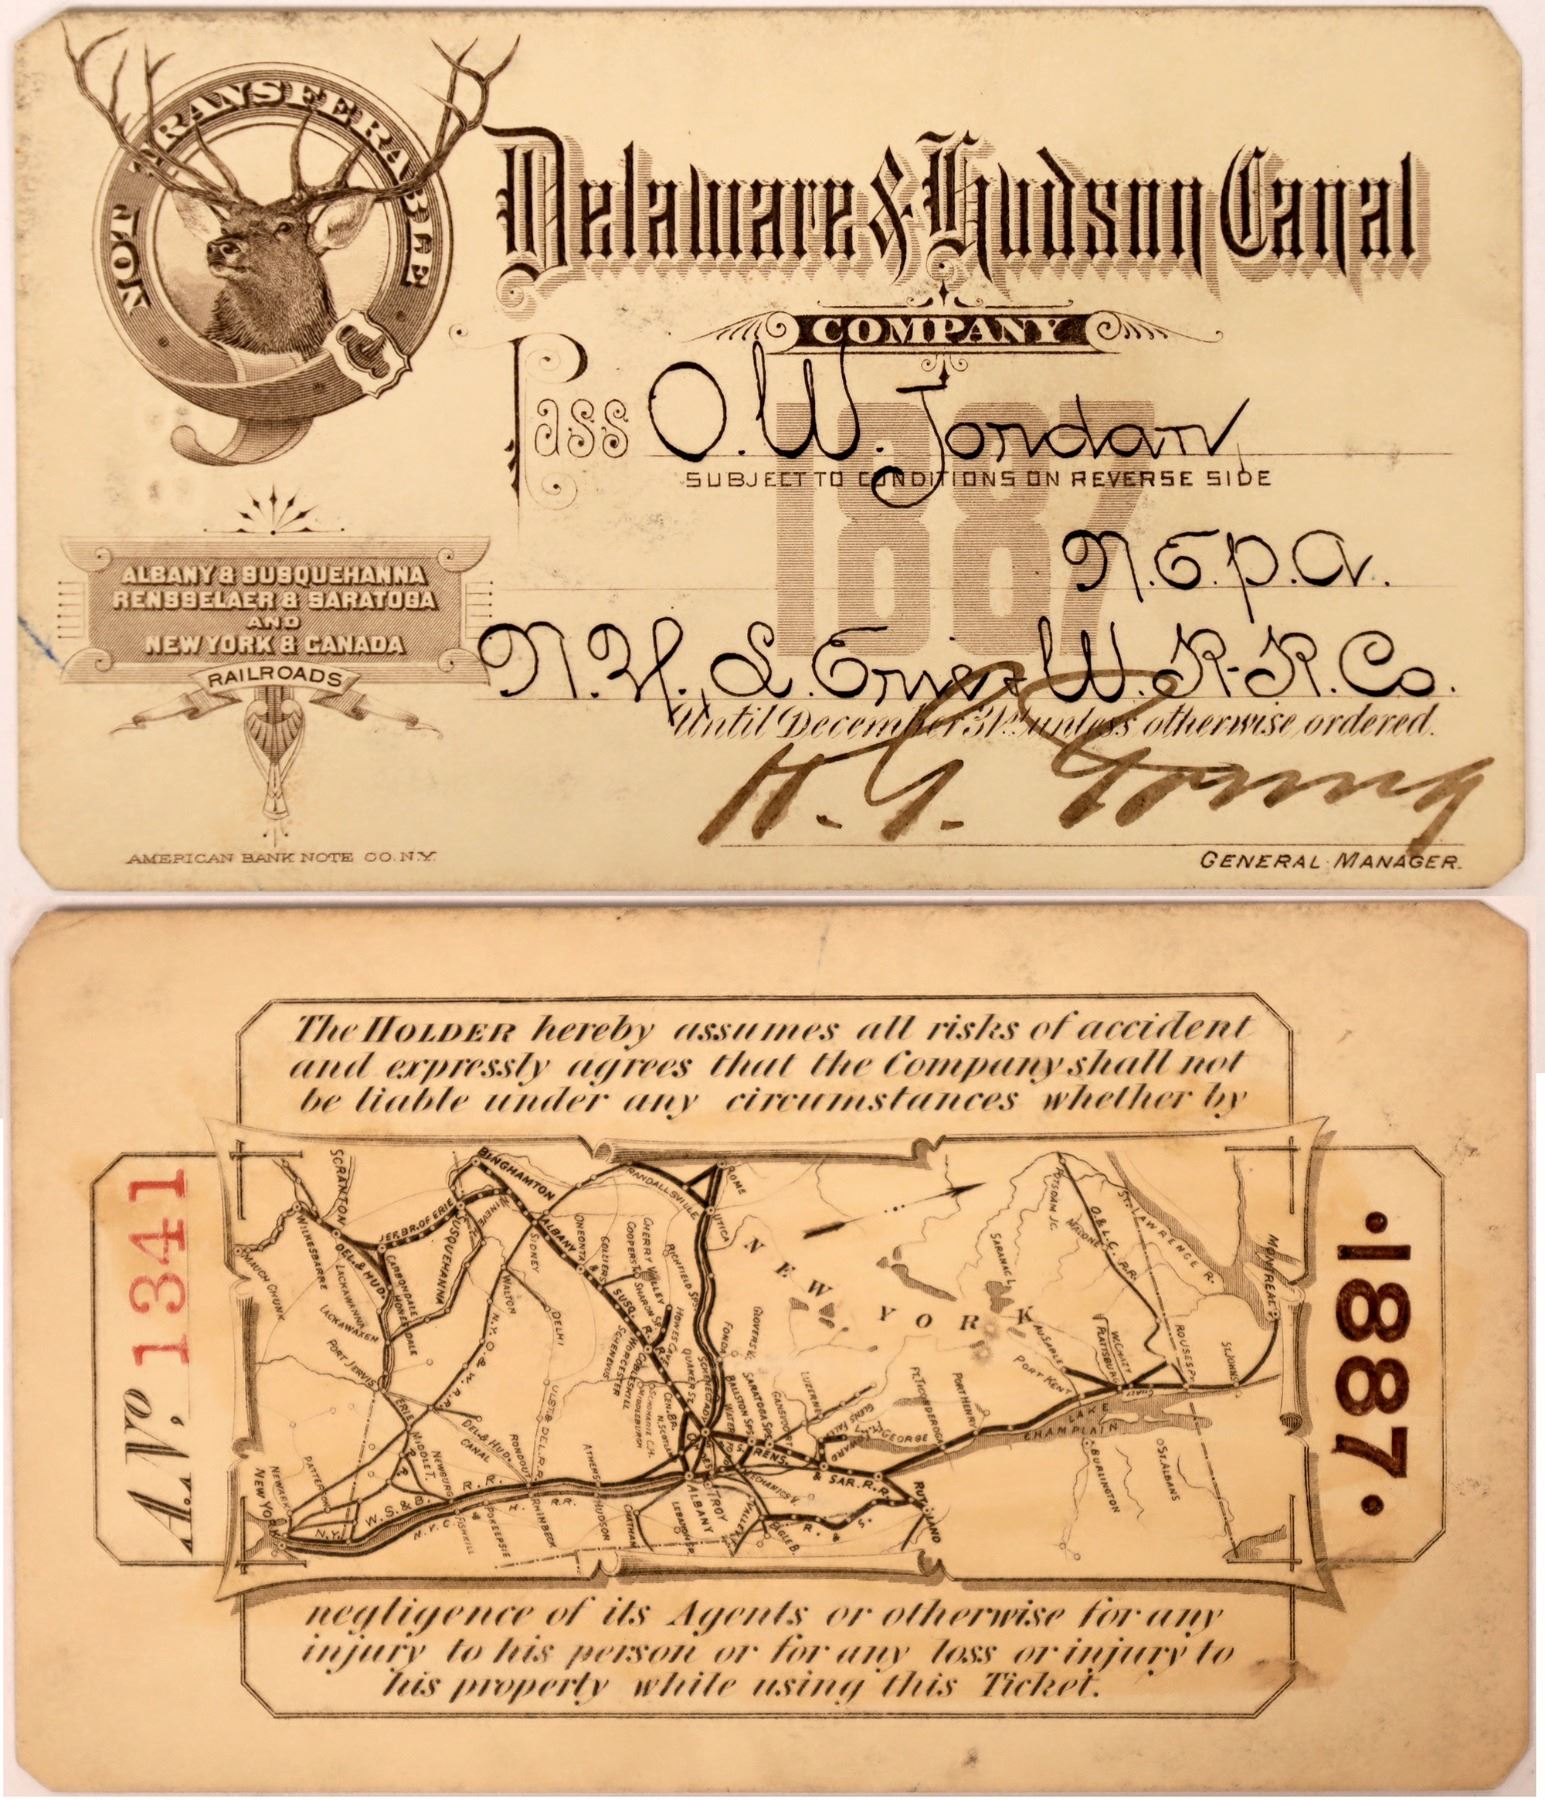 NOT TRANSFERABLE
Delaware & Hudson Canal
COMPANY
Pass O. W. Jordan,
SUBJECT TO CONDITIONS ON REVERSE SIDE
1887
N.E.P.A.
N.Y., L. Erie & W. R-R. Co.
Until December 31st unless otherwise ordered.
H. G. Young
GENERAL MANAGER.
ALBANY & SUSQUEHANNA
RENSSELAER & SARATOGA
AND
NEW YORK & CANADA
RAILROADS
AMERICAN BANK NOTE CO. N.Y.
The HOLDER hereby assumes all risks of accident
and expressly agrees that the Company shall not
be liable under any circumstances whether by
No. 1341
·1887·
NEW YORK
SCRANTON
WILKESBARRE
MAUCH CHUNK
BINGHAMTON
JEF. BR. OF ERIE
SUSQUEHANNA
NINEVEH
DEL. & HUD.
CARBONDALE
HONESDALE
LACKAWANNA
LACKAWAXEN
PORT JERVIS
ERIE
ALBANY & SUSQ. R.R.
SIDNEY
WALTON
DELHI
N.Y.O. & W. R.R.
ONEONTA
COLLIERS
COOPERST.
CHERRY VALLEY
SHARON SP.
RICHFIELD SPS.
RANDALLSVILLE
ROME
UTICA
HOWES CAVE
WORCESTER
SCHENEVUS
COBLESKILL
MIDDLEBURGH
QUAKER ST.
CEN. BR.
SCHENECTADY
FONDA
GLOVERSV.
BALLSTON SPS.
SARATOGA SPS.
GANSVOORT
LUZERNE
GLENS FALLS
FT. EDWARD
L. GEORGE
FT. TICONDEROGA
PORT HENRY
PORT KENT
AUSABLE
PLATTSBURG
W. CHAZY
CHAZY
ROUSES PT.
ST. JOHNS
MONTREAL
ST. LAWRENCE R.
O. & L. C. R.R.
MALONE
POTSDAM JC.
SARANAC L.
LAKE
CHAMPLAIN
BURLINGTON
ST. ALBANS
RENS. & SAR. R.R.
RUTLAND
R. & S.
EAGLE B.
MECHANICSV.
TROY
ALBANY
LEBANON SP.
CHATHAM
HUDSON
ATHENS
ULST. & DEL. R.R.
RONDOUT
RHINEBECK
POKEEPSIE
FISHKILL
NEWBURG
MIDDLET.
DEL. & HUD.
CANAL
W. S. & B. R.R.
N.Y.C. & H. R. R.R.
PATTERSON
NEWARK
NEW YORK
N.Y.
negligence of its Agents or otherwise for any
injury to his person or for any loss or injury to
his property while using this Ticket.